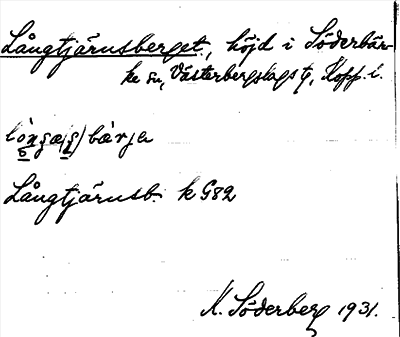 Långtjärnsberget, höjd i Söderbär-
ke sn, Västerbergslags tg, Kopp. l.
Långtjärnsb. k G82
K. Söderberg 1931.